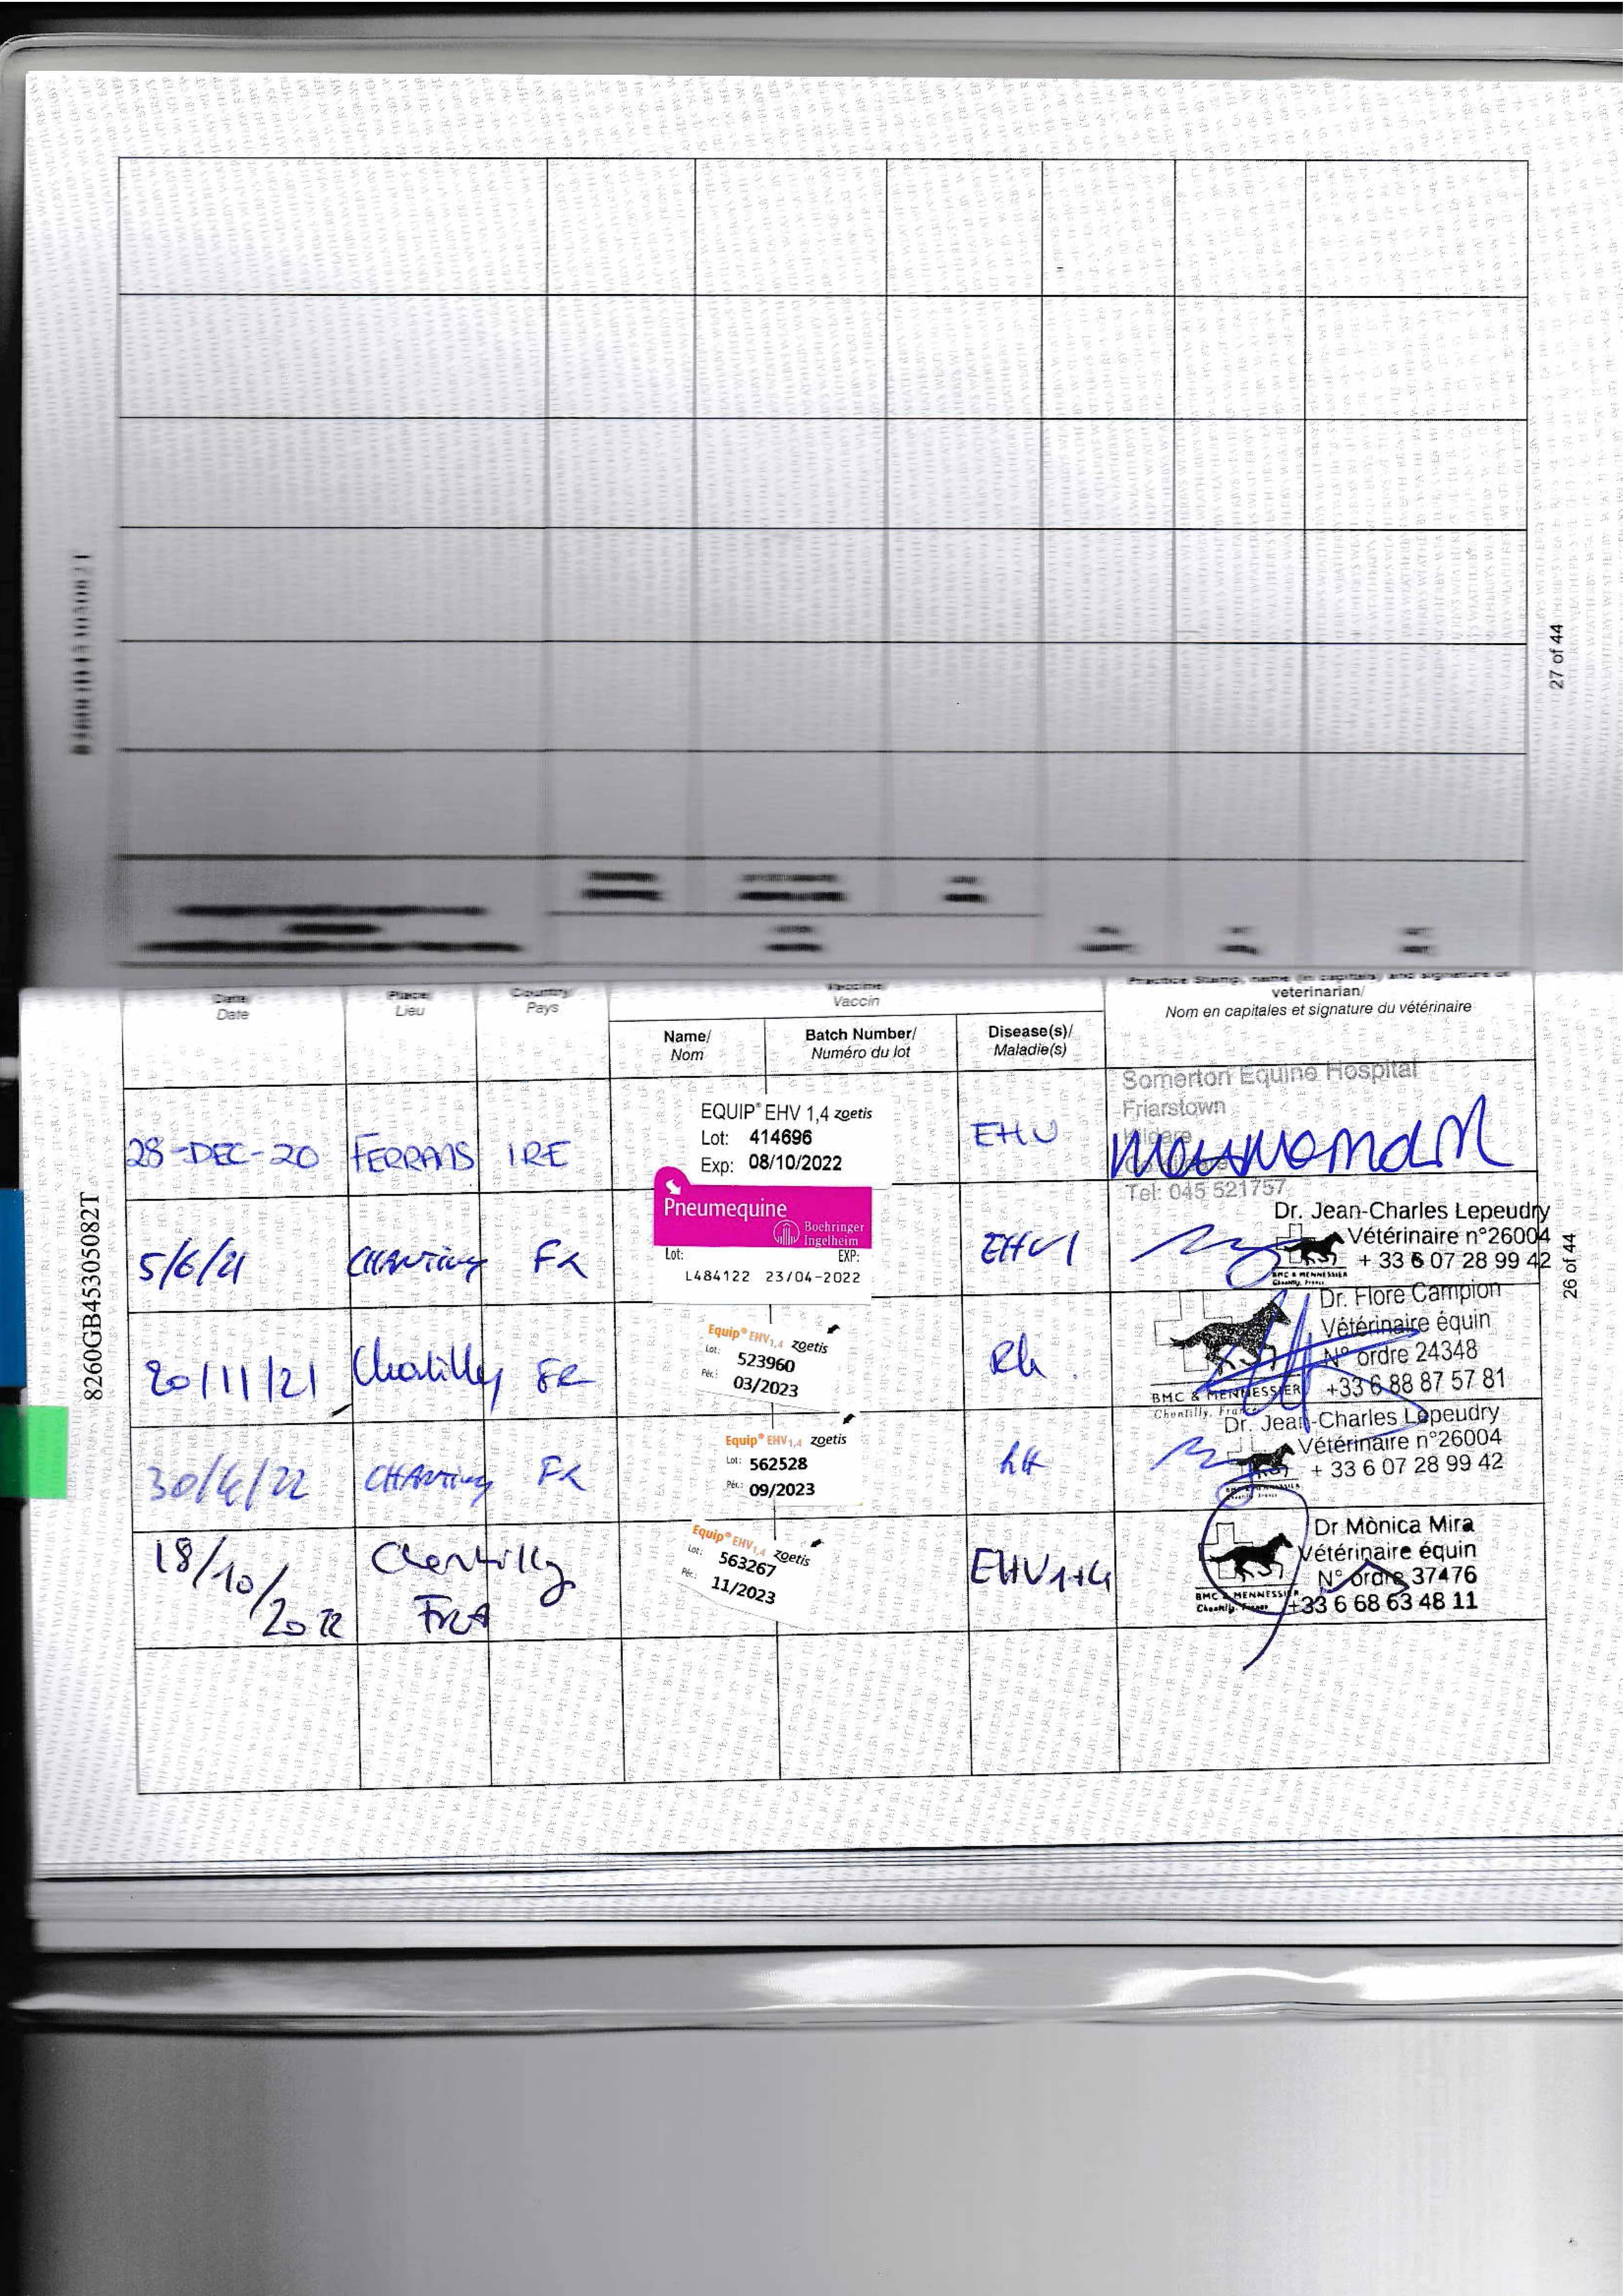 27 of 44
Date
Date
Place/
Lieu
Country/
Pays
Vaccine
Vaccin
Name/
Nom
Batch Number/
Numéro du lot
Disease(s)/
Maladie(s)
Practice Stamp, name (in capitals) and signature of
veterinarian/
Nom en capitales et signature du vétérinaire
28-DEC-20
IRE
EQUIP® EHV 1,4 zoetis
Lot: 414696
Exp: 08/10/2022
EHV
Somerton Equine Hospital
Friarstown
Kildare
Tel: 045 521757
5/6/21
CHANTILLY
FR
Pneumequine
Boehringer
Ingelheim
Lot: EXP:
L484122 23/04-2022
EHV1
Dr. Jean-Charles Lepeudry
Vétérinaire n°26004
+ 33 6 07 28 99 42
BMC & MENNESSIER
Chantilly, France
20/11/21
Chantilly
FR
Equip® EHV1,4 zoetis
Lot: 523960
Pér.: 03/2023
Rh.
Dr. Flore Campion
Vétérinaire équin
N° ordre 24348
+33 6 88 87 57 81
BMC & MENNESSIER
Chantilly, France
30/4/22
CHANTILLY
FR
Equip® EHV1,4 zoetis
Lot: 562528
Pér.: 09/2023
Dr. Jean-Charles Lepeudry
Vétérinaire n°26004
+ 33 6 07 28 99 42
18/10/2022
Chantilly
FRA
Equip® EHV1,4 zoetis
Lot: 563267
Pér.: 11/2023
EHV1+4
Dr Mònica Mira
Vétérinaire équin
N° ordre 37476
+33 6 68 63 48 11
BMC & MENNESSIER
Chantilly, France
8260GB45305082T
26 of 44